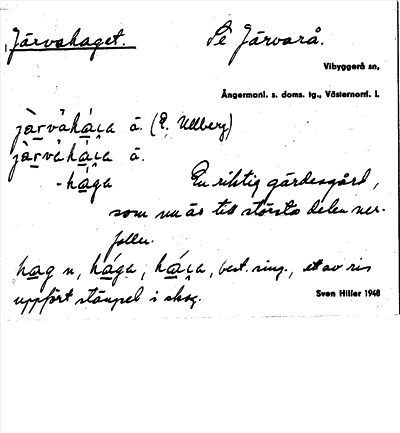 Järvahaget.
Se Järvarå.
Vibyggerå sn,
Ångermanl. s. doms. tg., Västernorrl. l.
å. (E. Ullberg)
å.
-hága
En riktig gärdesgård,
som nu är till största delen ner-
fallen.
hag n, hága, best. sing., ett av ris
uppfört stängsel i skog.
Sven Hiller 1948